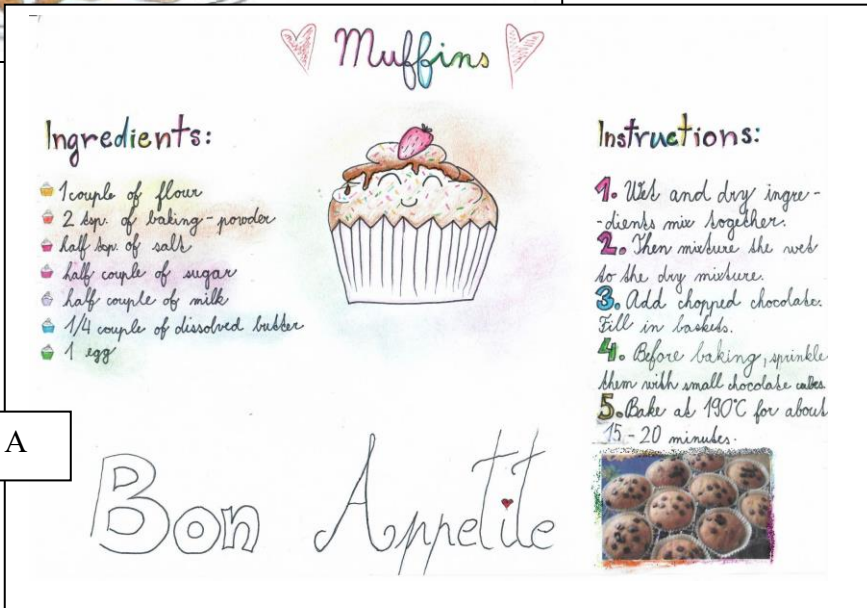 Muffins
Ingredients:
1 couple of flour
2 tsp. of baking-powder
half tsp. of salt
half couple of sugar
half couple of milk
1/4 couple of dissolved butter
1 egg
Instructions:
1. Wet and dry ingre-
-dients mix together.
2. Then mixture the wet
to the dry mixture.
3. Add chopped chocolate.
Fill in baskets.
4. Before baking, sprinkle
them with small chocolate cubes.
5. Bake at 190°C for about
15-20 minutes.
A
Bon Appetite